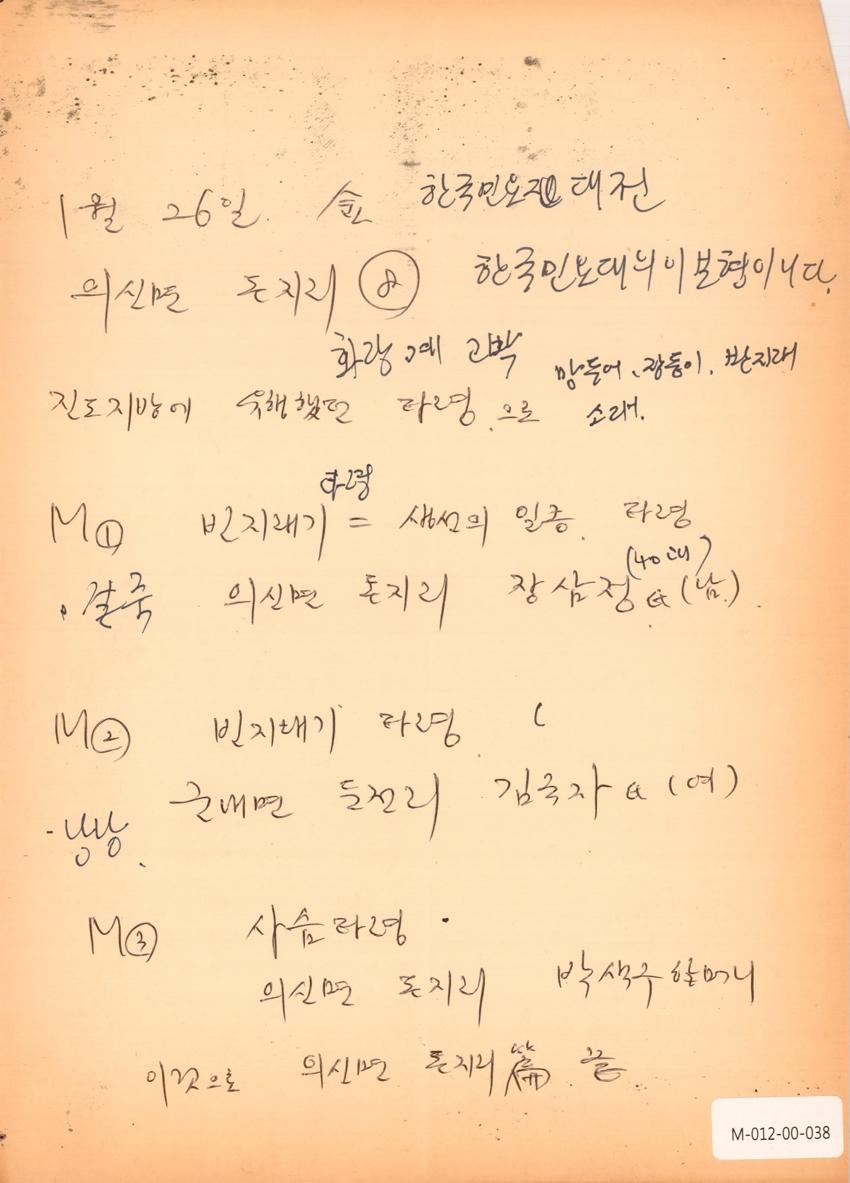 1월 26일 金 한국민요대전
의신면 돈지리 ⑧ 한국민요대의 이보형이니다.
화랑게 고막 망둥어, 장둥이, 반지래
진도지방에 유행했던 타령으로 소래.
타령
M① 빈지래기 = 생선의 일종 타령
(40대)
· 걸죽 의신면 돈지리 장삼정 (남).
M② 빈지래기 타령 (
군내면 둔전리 김국자 (여)
· 낭낭.
M③ 사슴타령 ·
의신면 돈지리 박색구 할머니
이것으로 의신면 돈지리篇 끝.
M-012-00-038